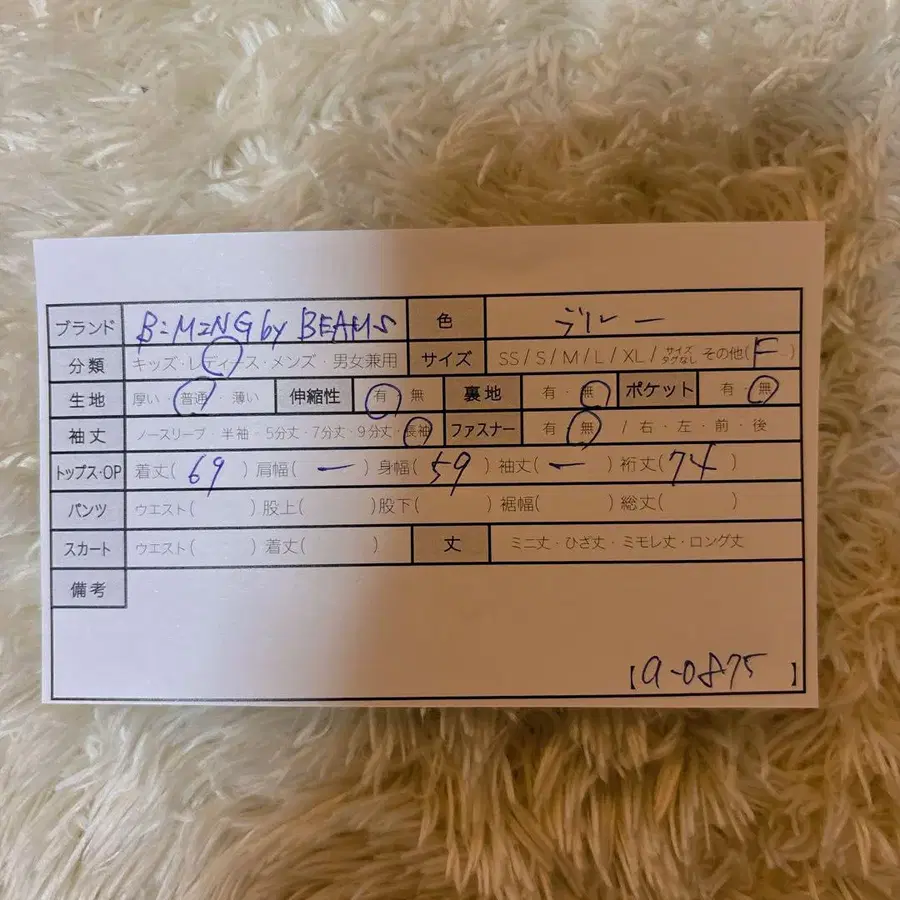 ブランド B:MING by BEAMS 色 ブルー
分類 キッズ・レディース・メンズ・男女兼用 サイズ SS/S/M/L/XL/サイズタグなし その他(F)
生地 厚い・普通・薄い 伸縮性 有・無 裏地 有・無 ポケット 有・無
袖丈 ノースリーブ・半袖・5分丈・7分丈・9分丈・長袖 ファスナー 有・無 / 右・左・前・後
トップス・OP 着丈(69) 肩幅(ー) 身幅(59) 袖丈(ー) 裄丈(74)
パンツ ウエスト( ) 股上( ) 股下( ) 裾幅( ) 総丈( )
スカート ウエスト( ) 着丈( ) 丈 ミニ丈・ひざ丈・ミモレ丈・ロング丈
備考
【a-0875】